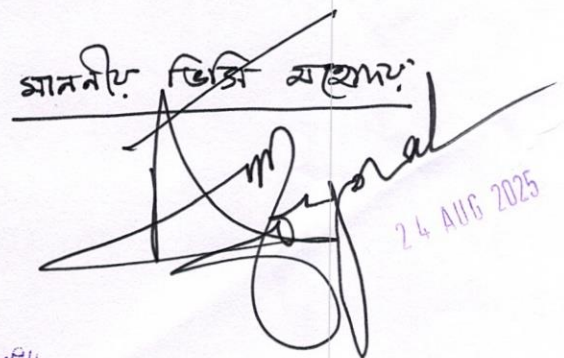 মাননীয় ভিসি মহোদয়
24 AUG 2025